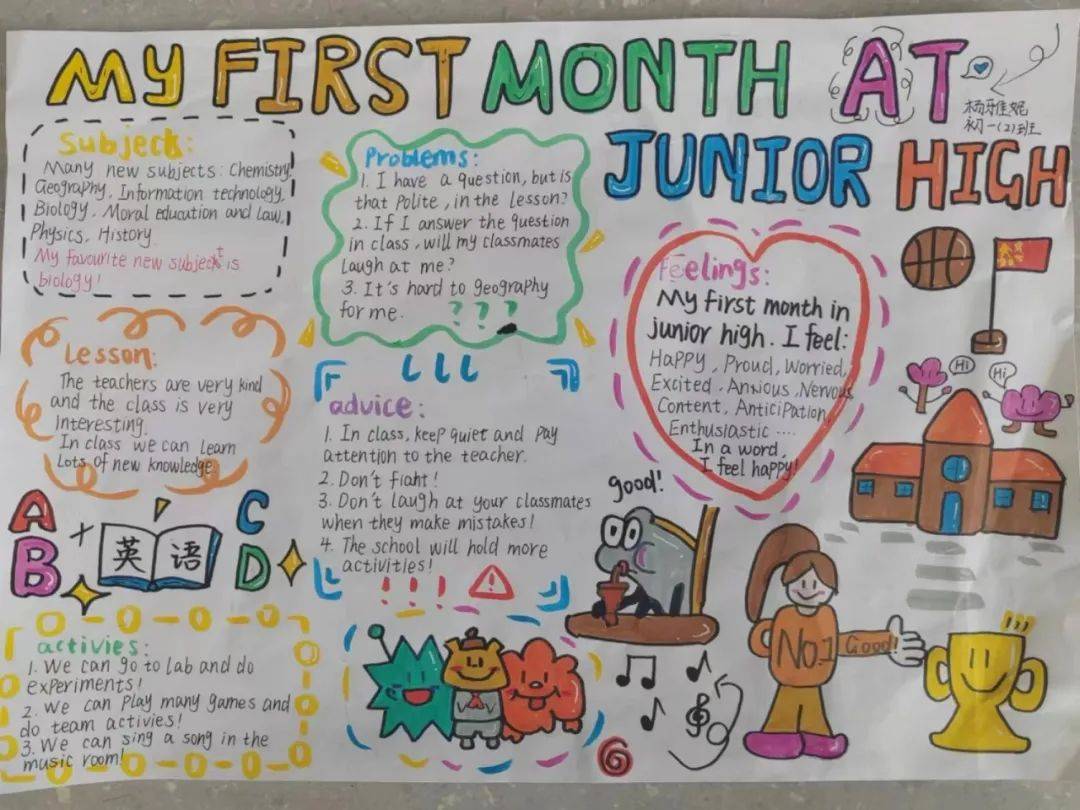 MY FIRST MONTH AT
JUNIOR HIGH
杨雅妮
初一(2)班
Subject:
Many new subjects: Chemistry,
Geography, Information technology,
Biology, Moral education and law,
Physics, History
My favourite new subject is
biology!
Lesson:
The teachers are very kind
and the class is very
Interesting.
In class we can learn
Lots of new knowledge
A B C D
英语
activies:
1. We can go to lab and do
experiments!
2. We can play many games and
do team activies!
3. We can sing a song in the
music room!
Problems:
1. I have a question, but is
that Polite, in the lesson?
2. If I answer the question
in class, will my classmates
laugh at me?
3. It's hard to geography
for me. ???
advice:
1. In class, keep quiet and pay
attention to the teacher.
2. Don't fiaht!
3. Don't laugh at your classmates
when they make mistakes!
4. The school will hold more
activities!
!!! !
Feelings:
My first month in
junior high. I feel:
Happy, Proud, worried,
Excited, Anxious, Nervous
Content, Anticipation,
Enthusiastic ....
In a word,
I feel happy!
Hi
Hi
good!
No.1
Good!